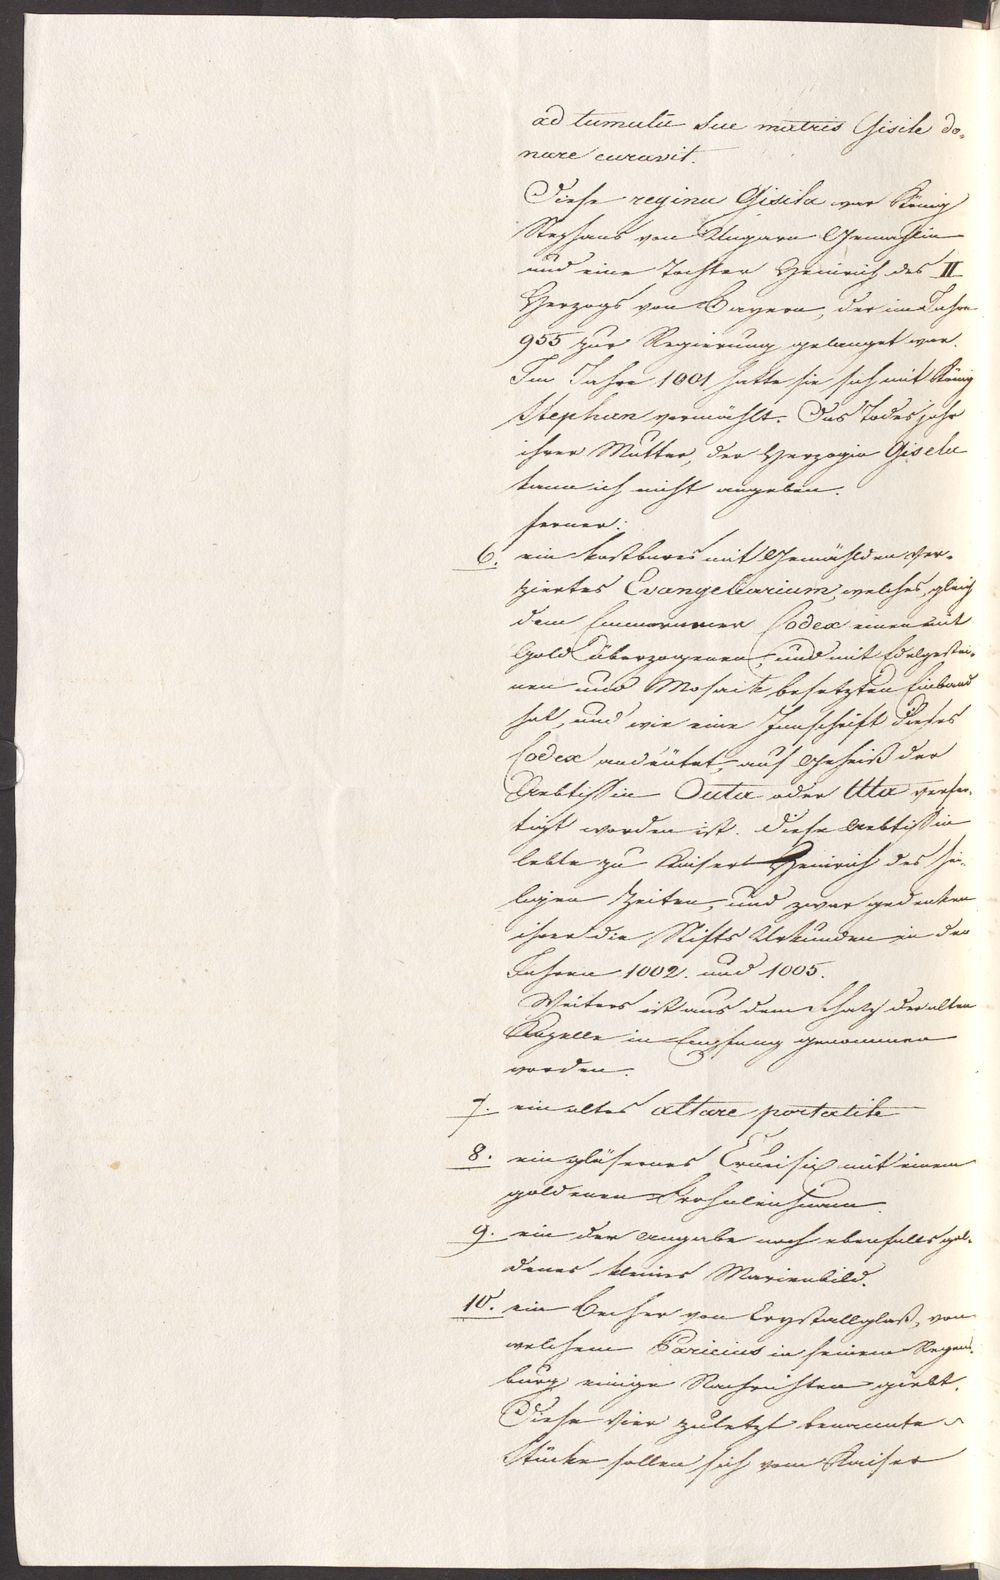 ad tumulū sue matris Gisile do-
nare curavit.
Diese regina Gisila war König
Stephans von Ungarn Gemahlin
und eine Tochter Heinrich des II
Herzogs von Bayern, der im Jahre
955 zur Regierung gelanget war.
Im Jahre 1001 hatte sie sich mit König
Stephan vermählt. Das Todesjahr
ihrer Mutter, der Herzogin Gisela
kann ich nicht angeben.
ferner:
6. ein kostbares mit Gemählden ver-
ziertes Evangeliarium, welches, gleich
dem Emmeramer Codex einen mit
Gold überzogenen, und mit Edelgestei-
nen und Mosaik besetzten Einband
hat, und wie eine Innschrift dieses
Codex andeutet, auf Geheiß der
Aebtissin Outa oder Uta verfer-
tigt worden ist. Diese Aebtissin
lebte zu Kaisers Heinrich des hei-
ligen Zeiten, und zwar gedenken
ihrer die Stifts Urkunden in den
Jahren 1002. und 1005.
Weiters ist aus dem Schatz der alten
Kapelle in Empfang genommen
worden.
7. ein altes altare portatile
8. ein gläsernes Crucifix mit einem
goldenen
9. ein der Angabe nach ebenfalls gol-
denes kleines Marienbild.
10. ein Becher von Crystallglaß, von
welchem Paricius in seinem Regens-
burg einige Nachrichten giebt.
Diese vier zuletzt benannte
Stücke sollen sich vom Kaiser